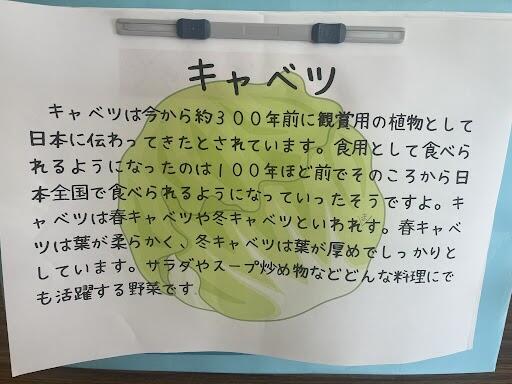 キャベツ
キャベツは今から約３００年前に観賞用の植物として
日本に伝わってきたとされています。食用として食べら
れるようになったのは１００年ほど前でそのころから日
本全国で食べられるようになっていったそうですよ。キ
ャベツは春キャベツや冬キャベツといわれす。春キャベ
ツは葉が柔らかく、冬キャベツは葉が厚めでしっかりと
しています。サラダやスープ炒め物などどんな料理にで
も活躍する野菜です